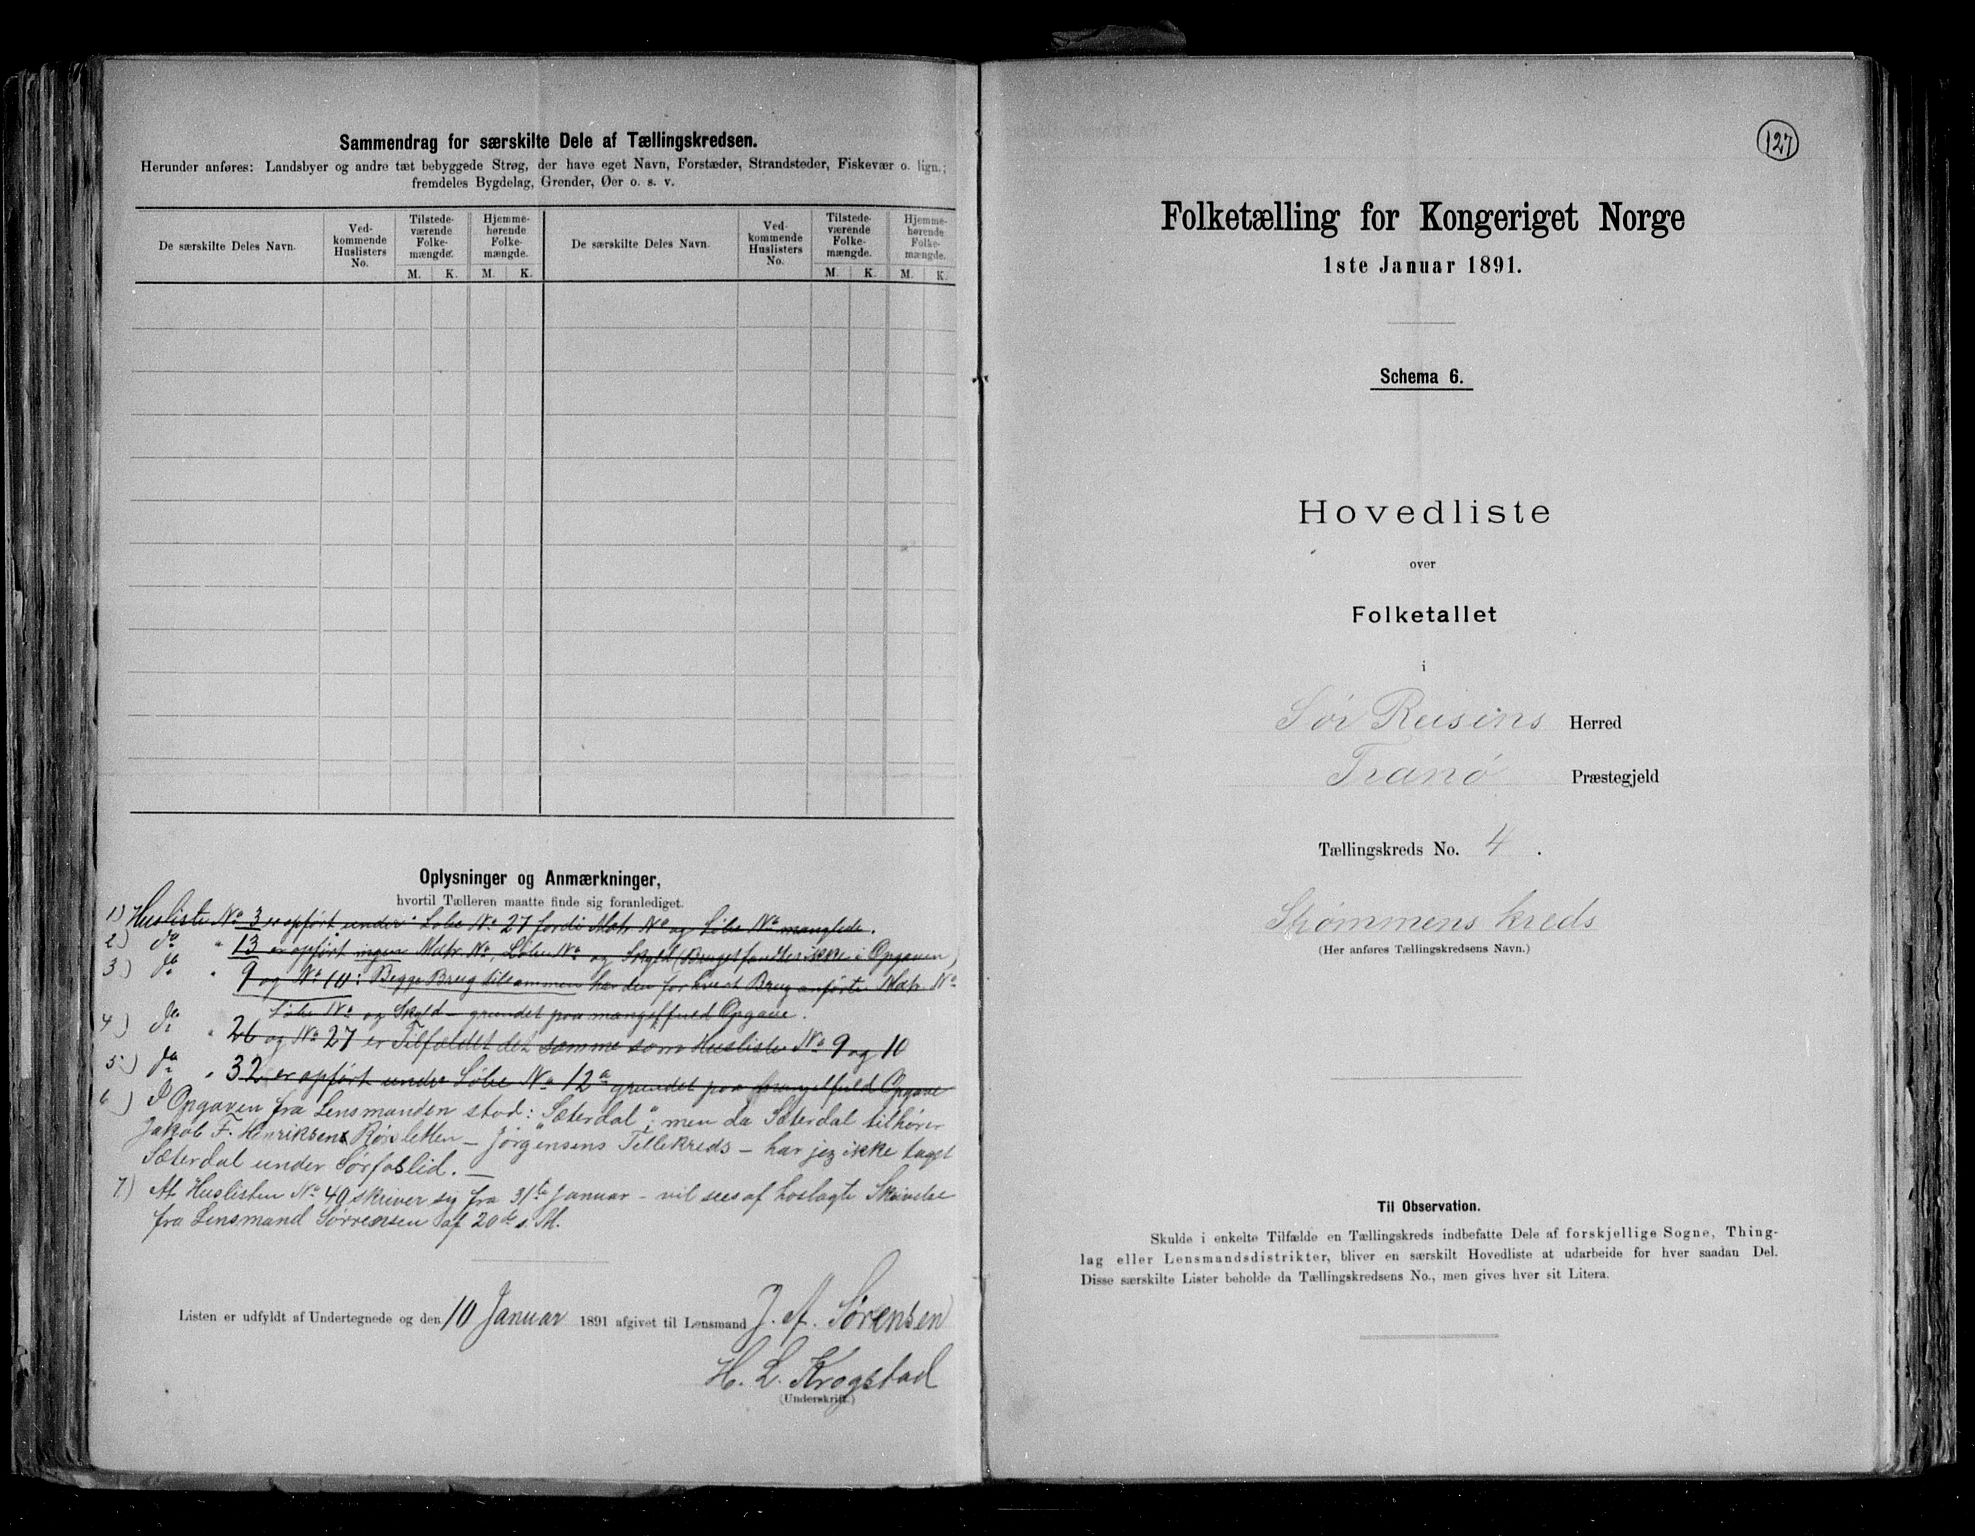 Sammendrag for særskilte Dele af Tællingskredsen.
Herunder anføres: Landsbyer og andre tæt bebyggede Strøg, der have eget Navn, Forstæder, Strandsteder, Fiskevær o. lign.;
fremdeles Bygdelag, Grender, Øer o. s. v.
De særskilte Deles Navn.
Ved-
kommende
Huslisters
No.
Tilstede-
værende
Folke-
mængde.
Hjemme-
hørende
Folke-
mængde.
M. K. M. K.
De særskilte Deles Navn.
Ved-
kommende
Huslisters
No.
Tilstede-
værende
Folke-
mængde.
Hjemme-
hørende
Folke-
mængde.
M. K. M. K.
Oplysninger og Anmærkninger,
hvortil Tælleren maatte finde sig foranlediget.
1) Husliste No 3 er opført under Løbe No 27 fordi Matr No og Løbe No manglede.
2) do " 13 er opført ingen Matr No, Løbe No og Skyld (Bruget fandtes ikke i Opgaven)
3) do " 9 og No 10: Begge Brug tilsammen har den for hvert Brug anførte Matr. No
Løbe No og Skyld - grundet paa mangelfuld Opgave.
4) do " 26 og No 27 er Tilfældet det samme som Husliste No 9 og 10
5) do " 32 er opført under Løbe No 12a grundet paa mangelfuld Opgave
6) I Opgaven fra Lensmanden stod: "Sæterdal", men da Sæterdal tilhører
Jakob F. Henriksens Rørsletten - Jörgensens Tellekreds - har jeg ikke taget
Sæterdal under Sørfoslid. -
7) At Huslisten No 40 skriver sig fra 31te Januar - vil sees af hoslagte Skrivelse
fra Lensmand Sørrensen af 20de s. M.
Listen er udfyldt af Undertegnede og den 10 Januar 1891 afgivet til Lensmand J. A. Sørensen
H. L. Krogstad
(Underskrift.)
127
Folketælling for Kongeriget Norge
1ste Januar 1891.
Schema 6.
Hovedliste
over
Folketallet
i
Sør Reisens Herred
Tranø Præstegjeld
Tællingskreds No. 4.
Strømmens kreds
(Her anføres Tællingskredsens Navn.)
Til Observation.
Skulde i enkelte Tilfælde en Tællingskreds indbefatte Dele af forskjellige Sogne, Thing-
lag eller Lensmandsdistrikter, bliver en særskilt Hovedliste at udarbeide for hver saadan Del.
Disse særskilte Lister beholde da Tællingskredsens No., men gives hver sit Litera.